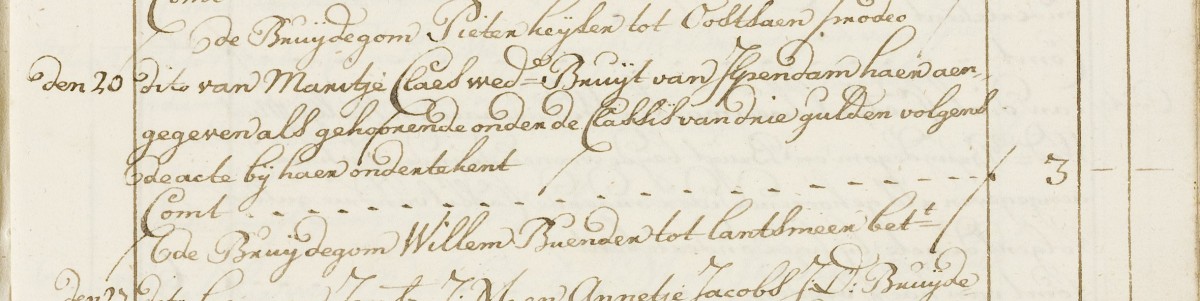 Comt
de Bruijdegom Pieter heijser tot Oostsaen prodeo
den 20 dito van Maritje Claes wed.e Bruijt van Ilpendam haer aen-
gegeven als gehoorende onder de Classis van drie gulden volgens
de acte bij haer ondertekent
Comt - - - - - - - - - - - - - - - - - f 3 - -
de Bruijdegom Willem Buender tot lantsmeer bet.t
den 23 dito Annetje Jacobs J:D: Bruijde